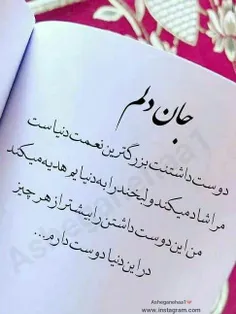 جان دلم
دوست داشتنت بزرگترین نعمت دنیاست
مرا شاد میکند و لبخند را به دنیایم هدیه میکند
من این دوست داشتن را بیشتر از هر چیز
در این دنیا دوست دارم...
Asheganehaa1
Asheganehaa1
www.instagram.com